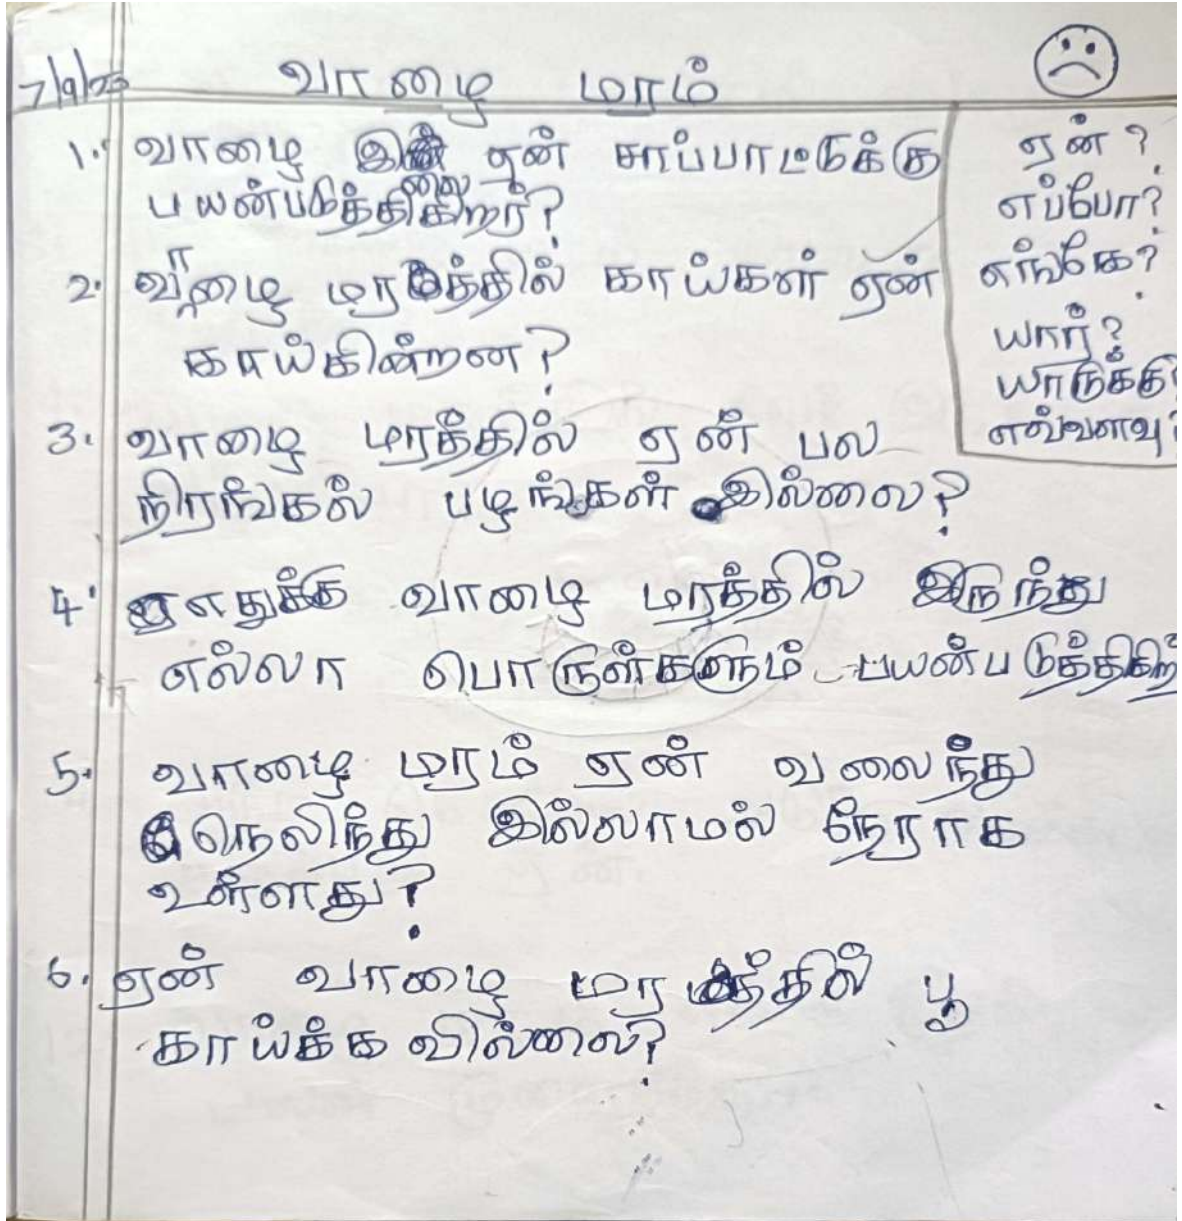 7/9/23
வாழை மரம்
1. வாழை ஏன் சாப்பாட்டுக்கு
பயன்படுத்திகிறர்?
2. வாழை மரத்தில் காய்கள் ஏன்
காய்கின்றன?
3. வாழை மரத்தில் ஏன் பல
நிரங்கல் பழங்கள் இல்லை?
4. எதுக்கு வாழை மரத்தில் இருந்து
எல்லா பொருள்களும்
5. வாழை மரம் ஏன் வலைந்து
நெலிந்து இல்லாமல் நேராக
உள்ளது?
6. ஏன் வாழை மரத்தில் பூ
காய்க்க வில்லை?
ஏன்?
எப்போ?
எங்கே?
யார்?
யாருக்கு
எவ்வளவு?